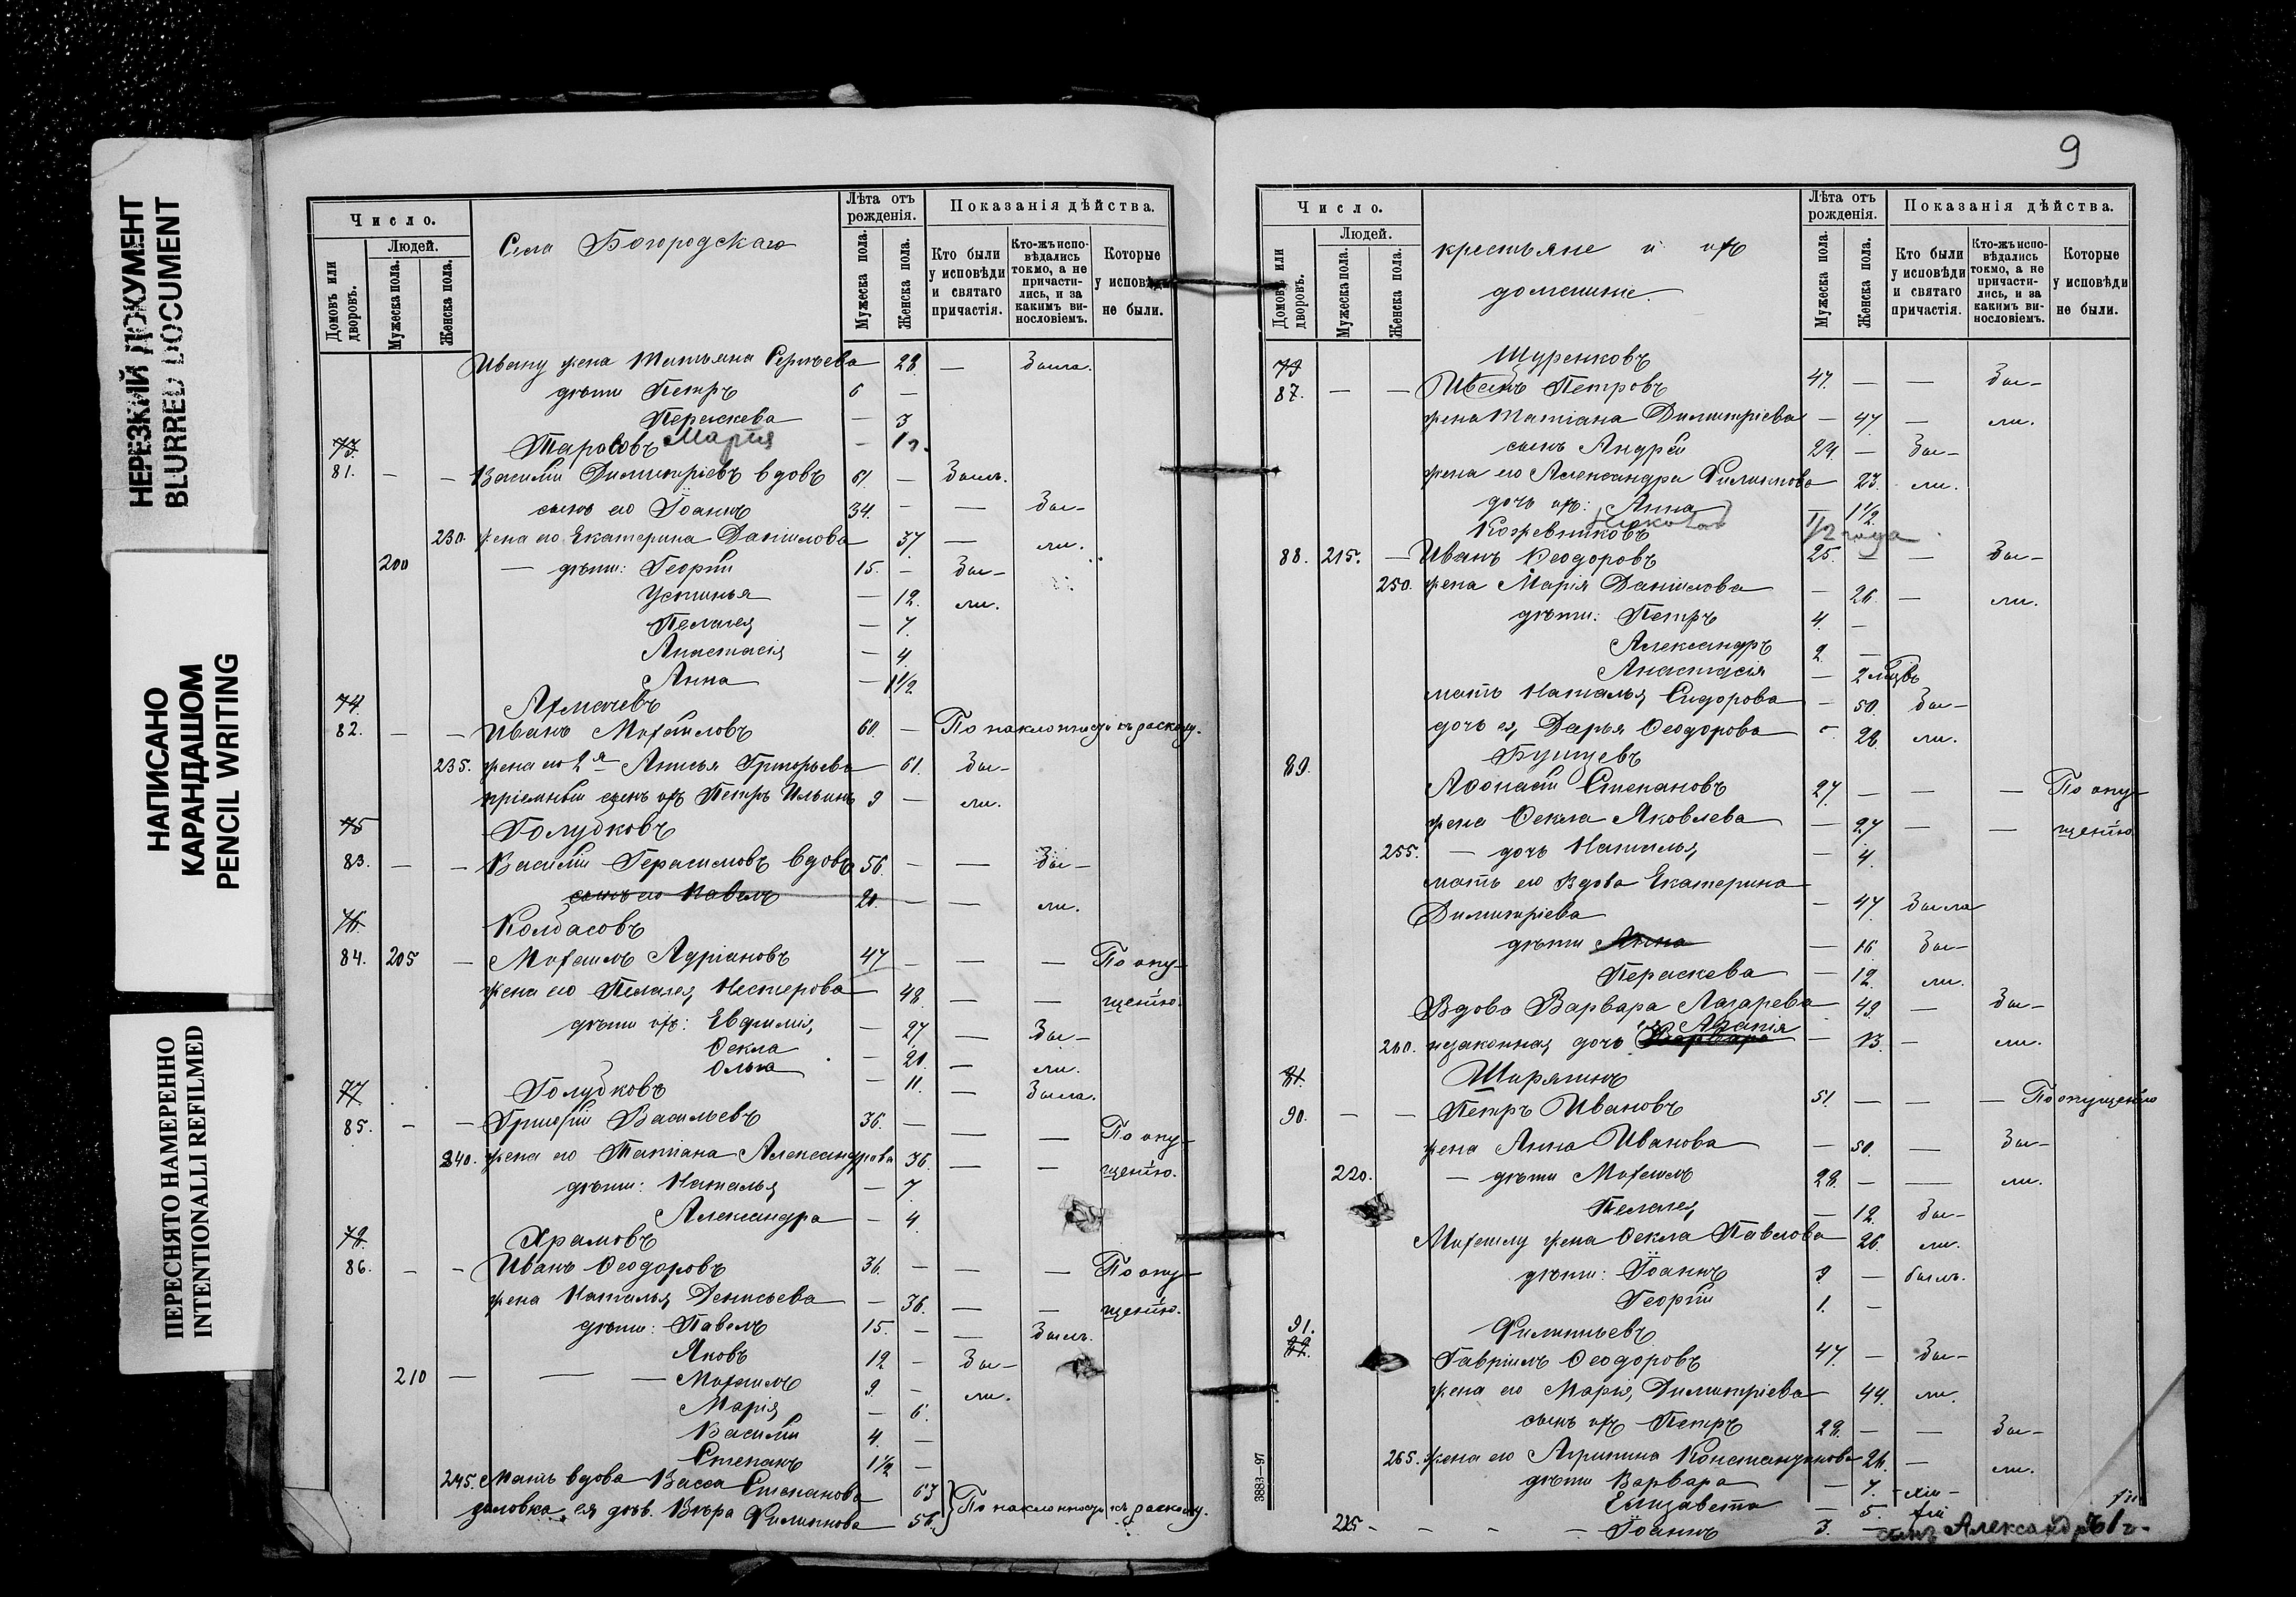 НЕРЕЗКИЙ ДОКУМЕНТ
BLURRED DOCUMENT
НАПИСАНО
КАРАНДАШОМ
PENCIL WRITING
ПЕРЕСНЯТО НАМЕРЕННО
INTENTIONALLI REFILMED
Число.
Людей.
Домовъ или дворовъ.
Мужеска пола.
Женска пола.
Села Богородскаго
Лѣта отъ рожденія.
Мужеска пола.
Женска пола.
Показанія дѣйства.
Кто были у исповѣди и святаго причастія.
Кто-жъ исповѣдались токмо, а не причастились, и за какимъ винословіемъ.
Которые у исповѣди не были.
Ивану жена Татьяна Сергѣева 28 — Была.
дѣти Петръ 6 —
Параскева — 3
73 Тарасовъ Марія — 1 г.
81. — — Василій Димитріевъ вдовъ 61. — Былъ.
сынъ его Іоаннъ 34. — — Бы-
230. жена его Екатерина Даниловна 37 — ли.
200 — дѣти: Георгій 15. — Бы-
Устинья — 12. ли.
Пелагея — 7.
Анастасія — 4
Анна — 1 1/2
74.
82. — — Иванъ Михайловъ 60. — По наклонности къ расколу.
235. жена его 2я Анисья Григорьева 61. Бы-
пріемный сынъ ихъ Петръ Ильинъ 9 — ли.
75 Голубковъ
83. — — Василій Герасимовъ вдовъ 56. — — Бы-
сынъ его Павелъ 20. — — ли.
76 Колбасовъ
84. 205 — Михаилъ Адріановъ 47 — — — По опу-
жена его Пелагея Нестерова 48. — — щенію.
дѣти ихъ: Евфимія — 27 — Бы-
Ѳекла — 20. — ли.
Ольга — 11. — Была.
77 Голубковъ
85. — — Григорій Васильевъ 36. — — — По опу-
240. жена его Татіана Александрова 36. — — щенію.
дѣти: Наталья — 7.
Александра — 4
78. Храмовъ
86. — — Иванъ Ѳеодоровъ 36. — — — По опу-
жена Наталья Денисьева — 36. — — щенію.
дѣти: Павелъ 15. — — Былъ.
Яковъ 12 — Бы-
210 — — — Михаилъ 9. — ли.
Марія — 6.
Василій 4. —
Степанъ 1 1/2 —
245. Мать вдова Васса Степанова 63
золовка ея дѣв. Вѣра Филиппова 56. По наклонности къ расколу.
9
Число.
Людей.
Домовъ или дворовъ.
Мужеска пола.
Женска пола.
крестьяне и ихъ
домашніе.
Лѣта отъ рожденія.
Мужеска пола.
Женска пола.
Показанія дѣйства.
Кто были у исповѣди и святаго причастія.
Кто-жъ исповѣдались токмо, а не причастились, и за какимъ винословіемъ.
Которые у исповѣди не были.
79 Щуренковъ
87. — — Иванъ Петровъ 47. — — Бы-
жена Татіана Димитріева — 47. — ли.
сынъ Андрей 29. — Бы-
жена его Александра Филиппова 23. ли.
дочь ихъ: Анна — 1 1/2
Кожевниковъ 1/2 года
88. 215. — Иванъ Ѳеодоровъ 25. — — Бы-
250. жена Марія Данилова — 26. — ли.
дѣти: Петръ 4. —
Александръ 2. —
Анастасія — 2 мѣсяц
мать Наталья Сидорова — 50. Бы-
дочь ея, Дарья Ѳеодорова — 28. ли.
89.
Аѳонасій Степановъ 27. — — — По опу-
жена Ѳекла Яковлева — 27 — — щенію.
255. — дочь Наталья — 4.
мать его вдова Екатерина
Димитріева — 47. Была
дѣти Анна — 16 Бы-
Параскева — 12. ли.
Вдова Варвара Лазарева 49. — Бы-
260. незаконная дочь ея Агапія — 13. — ли.
81. Ширягинъ
90. — — Петръ Ивановъ 51. — — — По опущенію
жена Анна Иванова — 50. — Бы-
220. — дѣти Михаилъ 28. — — ли.
Пелагея — 12. Бы-
Михаилу жена Ѳекла Павлова 26. ли.
дѣти: Іоаннъ 9 — былъ.
Георгій 1. —
91. Филипьевъ
82. Гавріилъ Ѳеодоровъ 47. — Бы-
жена его Марія Димитріева 44. ли.
сынъ ихъ Петръ 28. — — Бы-
265. жена его Агрипина Константинова 26. — ли.
дѣти Варвара — 7.
Елизавета — 5.
225 - - - - Іоаннъ 3. — сынъ Александръ 1 г.
3883—97